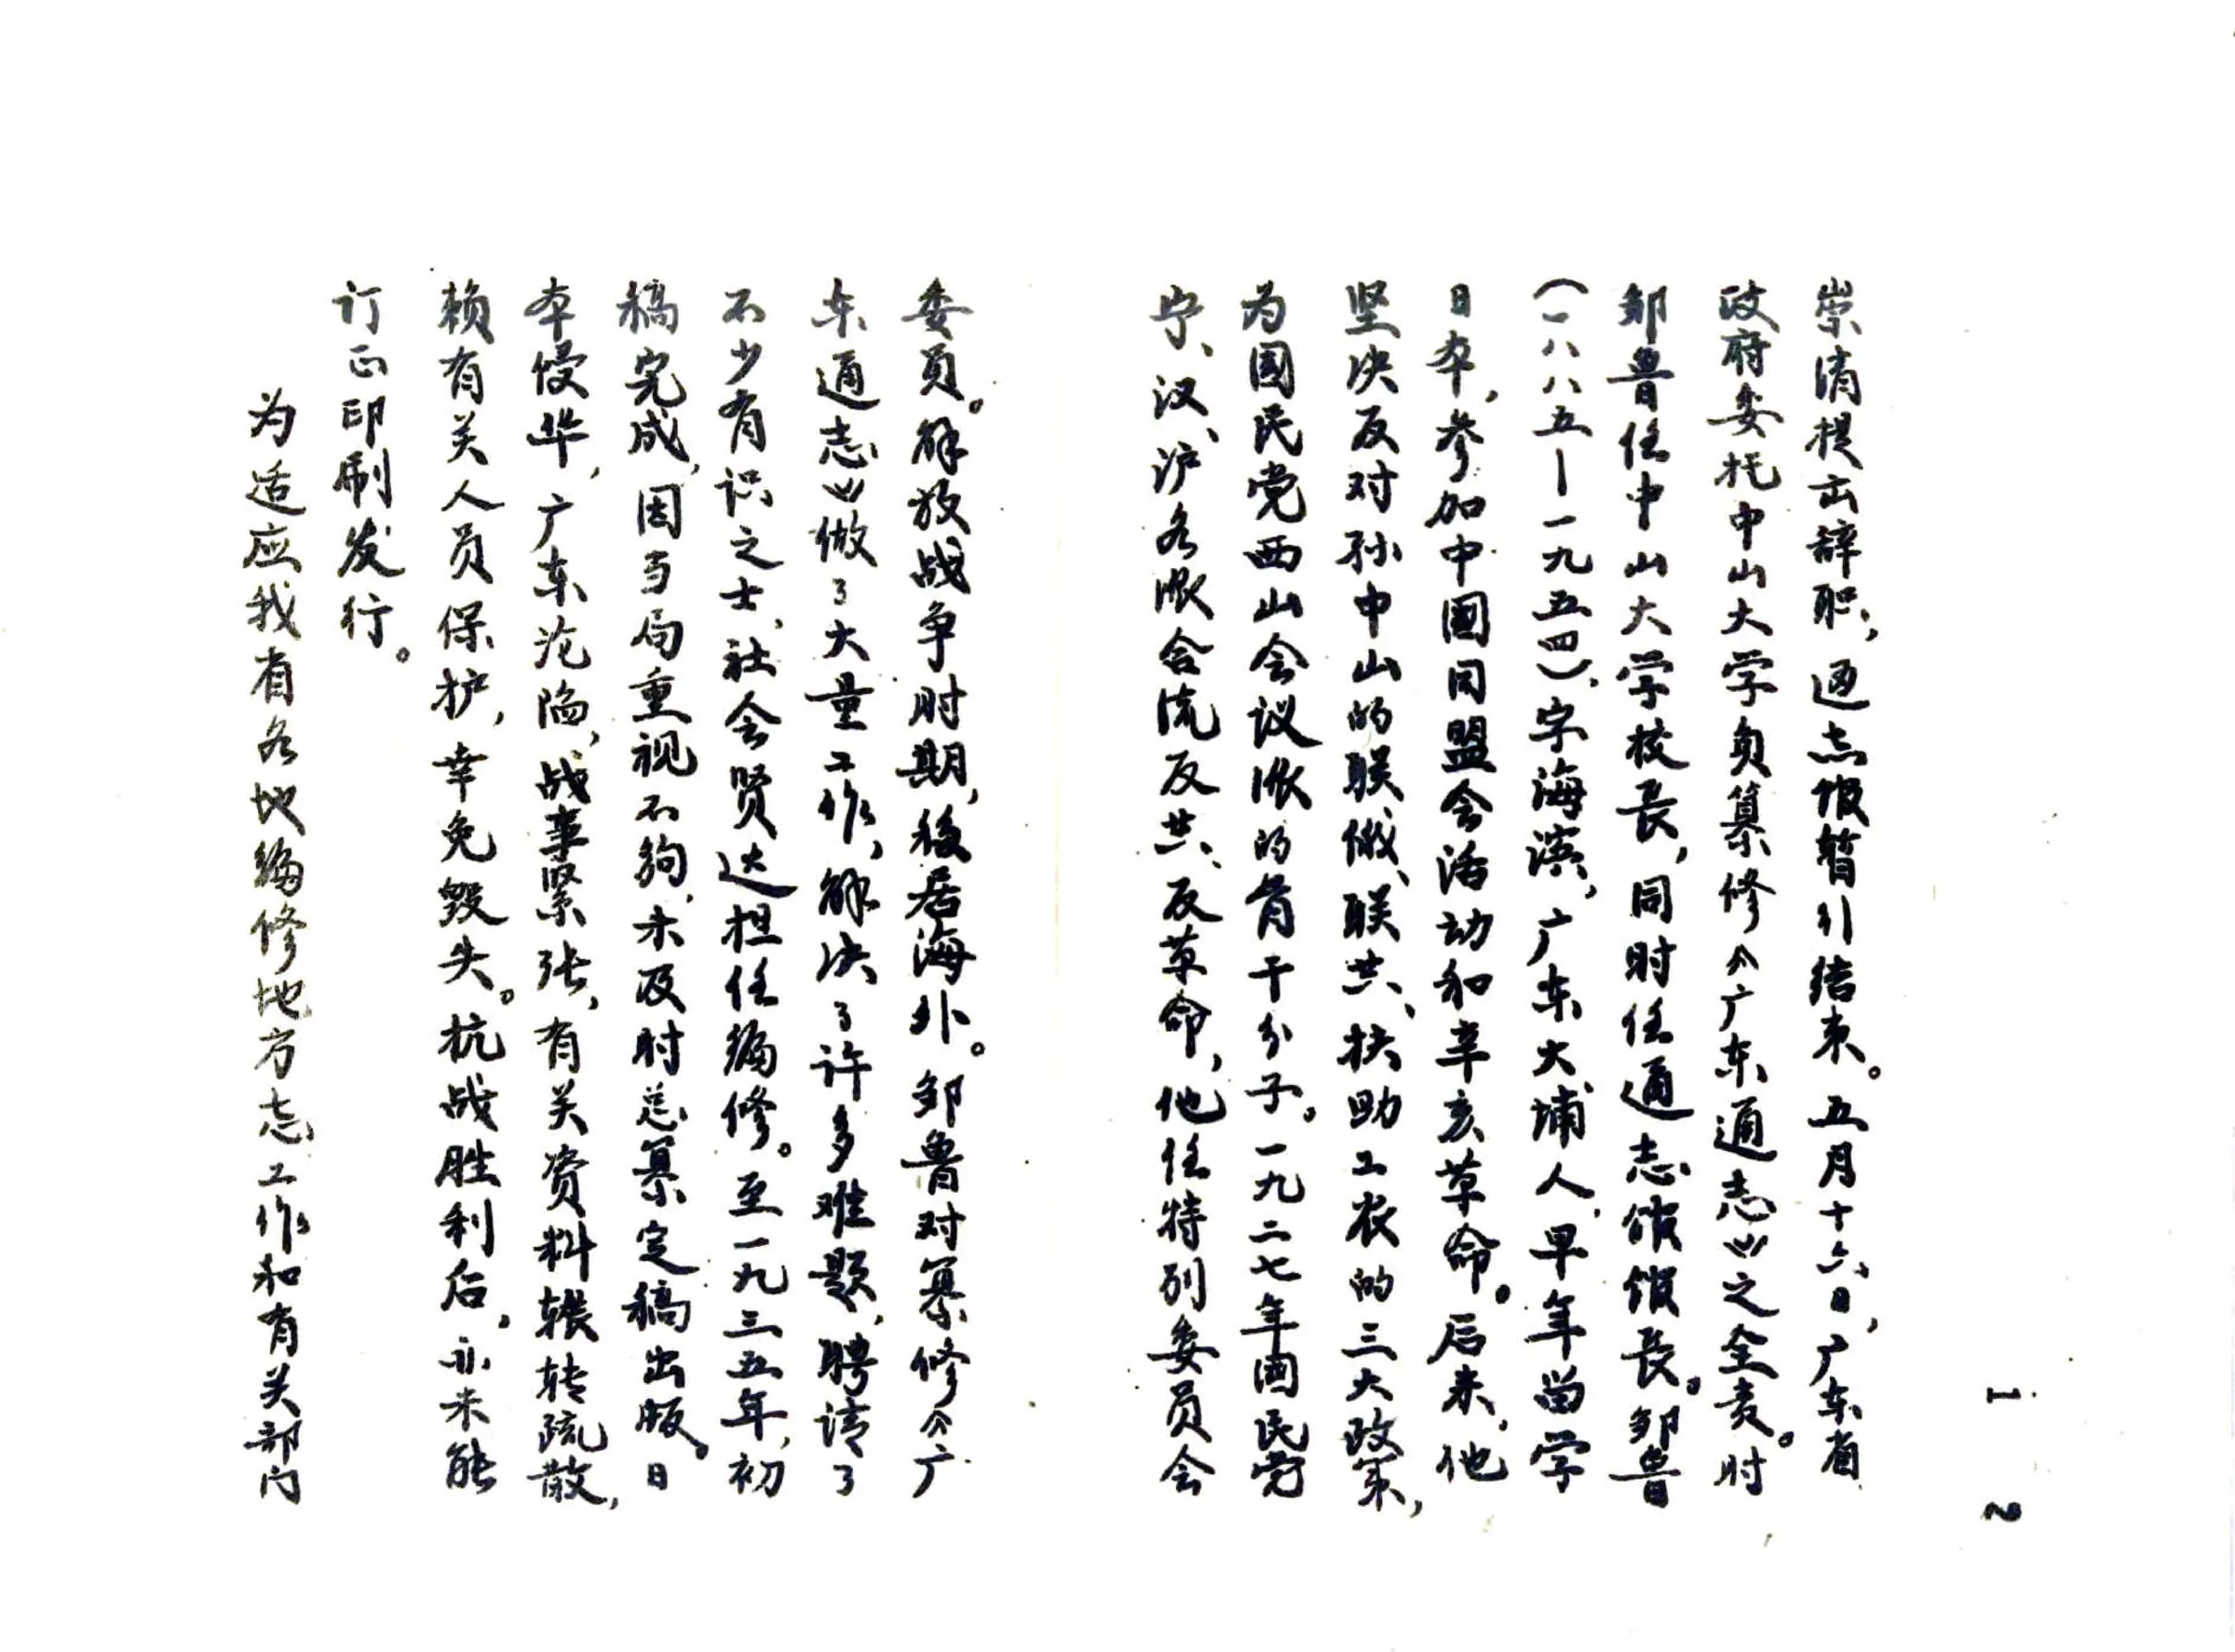 崇清提出辞职，通志馆暂引结束。五月十六日，广东省
政府委托中山大学负纂修《广东通志》之全责。时
邹鲁任中山大学校长，同时任通志馆馆长。邹鲁
（一八八五—一九五四），字海滨，广东大埔人，早年留学
日本，参加中国同盟会活动和辛亥革命。后来，他
坚决反对孙中山的联俄、联共、扶助工农的三大政策，
为国民党西山会议派的骨干分子。一九二七年国民党
宁、汉、沪各派合流反共、反革命，他任特别委员会
委员。解放战争时期，移居海外。邹鲁对纂修《广
东通志》做了大量工作，解决了许多难题，聘请了
不少有识之士、社会贤达担任编修。至一九三五年，初
稿完成，因当局重视不够，未及时总纂定稿出版。日
本侵华，广东沦陷，战事紧张，有关资料辗转疏散，
赖有关人员保护，幸免毁失。抗战胜利后，亦未能
订正印刷发行。
为适应我省各地编修地方志工作和有关部门
1 2